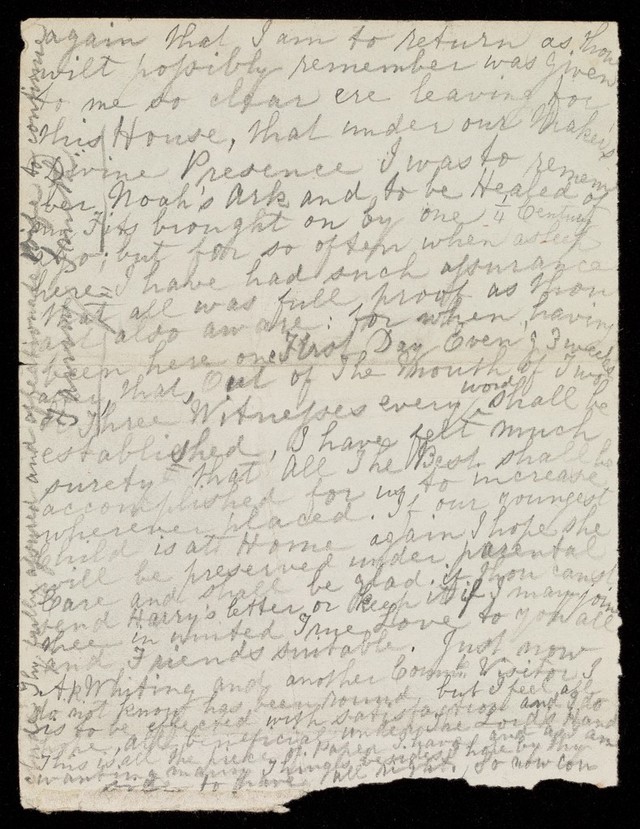 again that I am to return as Thou
wilt possibly remember was given
to me so clear ere leaving for
this House, that under our Maker's
Divine Presence I was to remem
ber Noah's Ark and to be Healed of
Fits brought on by one 1/4 Century
ago; but for so often when asleep
here I have had such assurance
that all was full proof as Thou
art also aware: for when having
been here one First Day Even'g I wrote
away, that, Out of The Mouth of Two
or Three Witnesses every word shall be
established, I have felt much
surety that All The Best shall be
accomplished for us to increase
wherever placed. If our youngest
Child is at Home again I hope she
will be preserved under parental
Care and shall be glad if Thou canst
send Harry's letter or keep it if I may join
thee in united True Love to you all
and Friends suitable. Just now
Whiting and another Visitor I
do not know has been round but I feel as
is to be effected with satisfaction and
all beneficial under The Lord's Hand
This is all the piece of Paper I have and am
wanting many Things besides I hope by thy
to have all right, so now con
Thy fully assured and affectionate Wife to continue